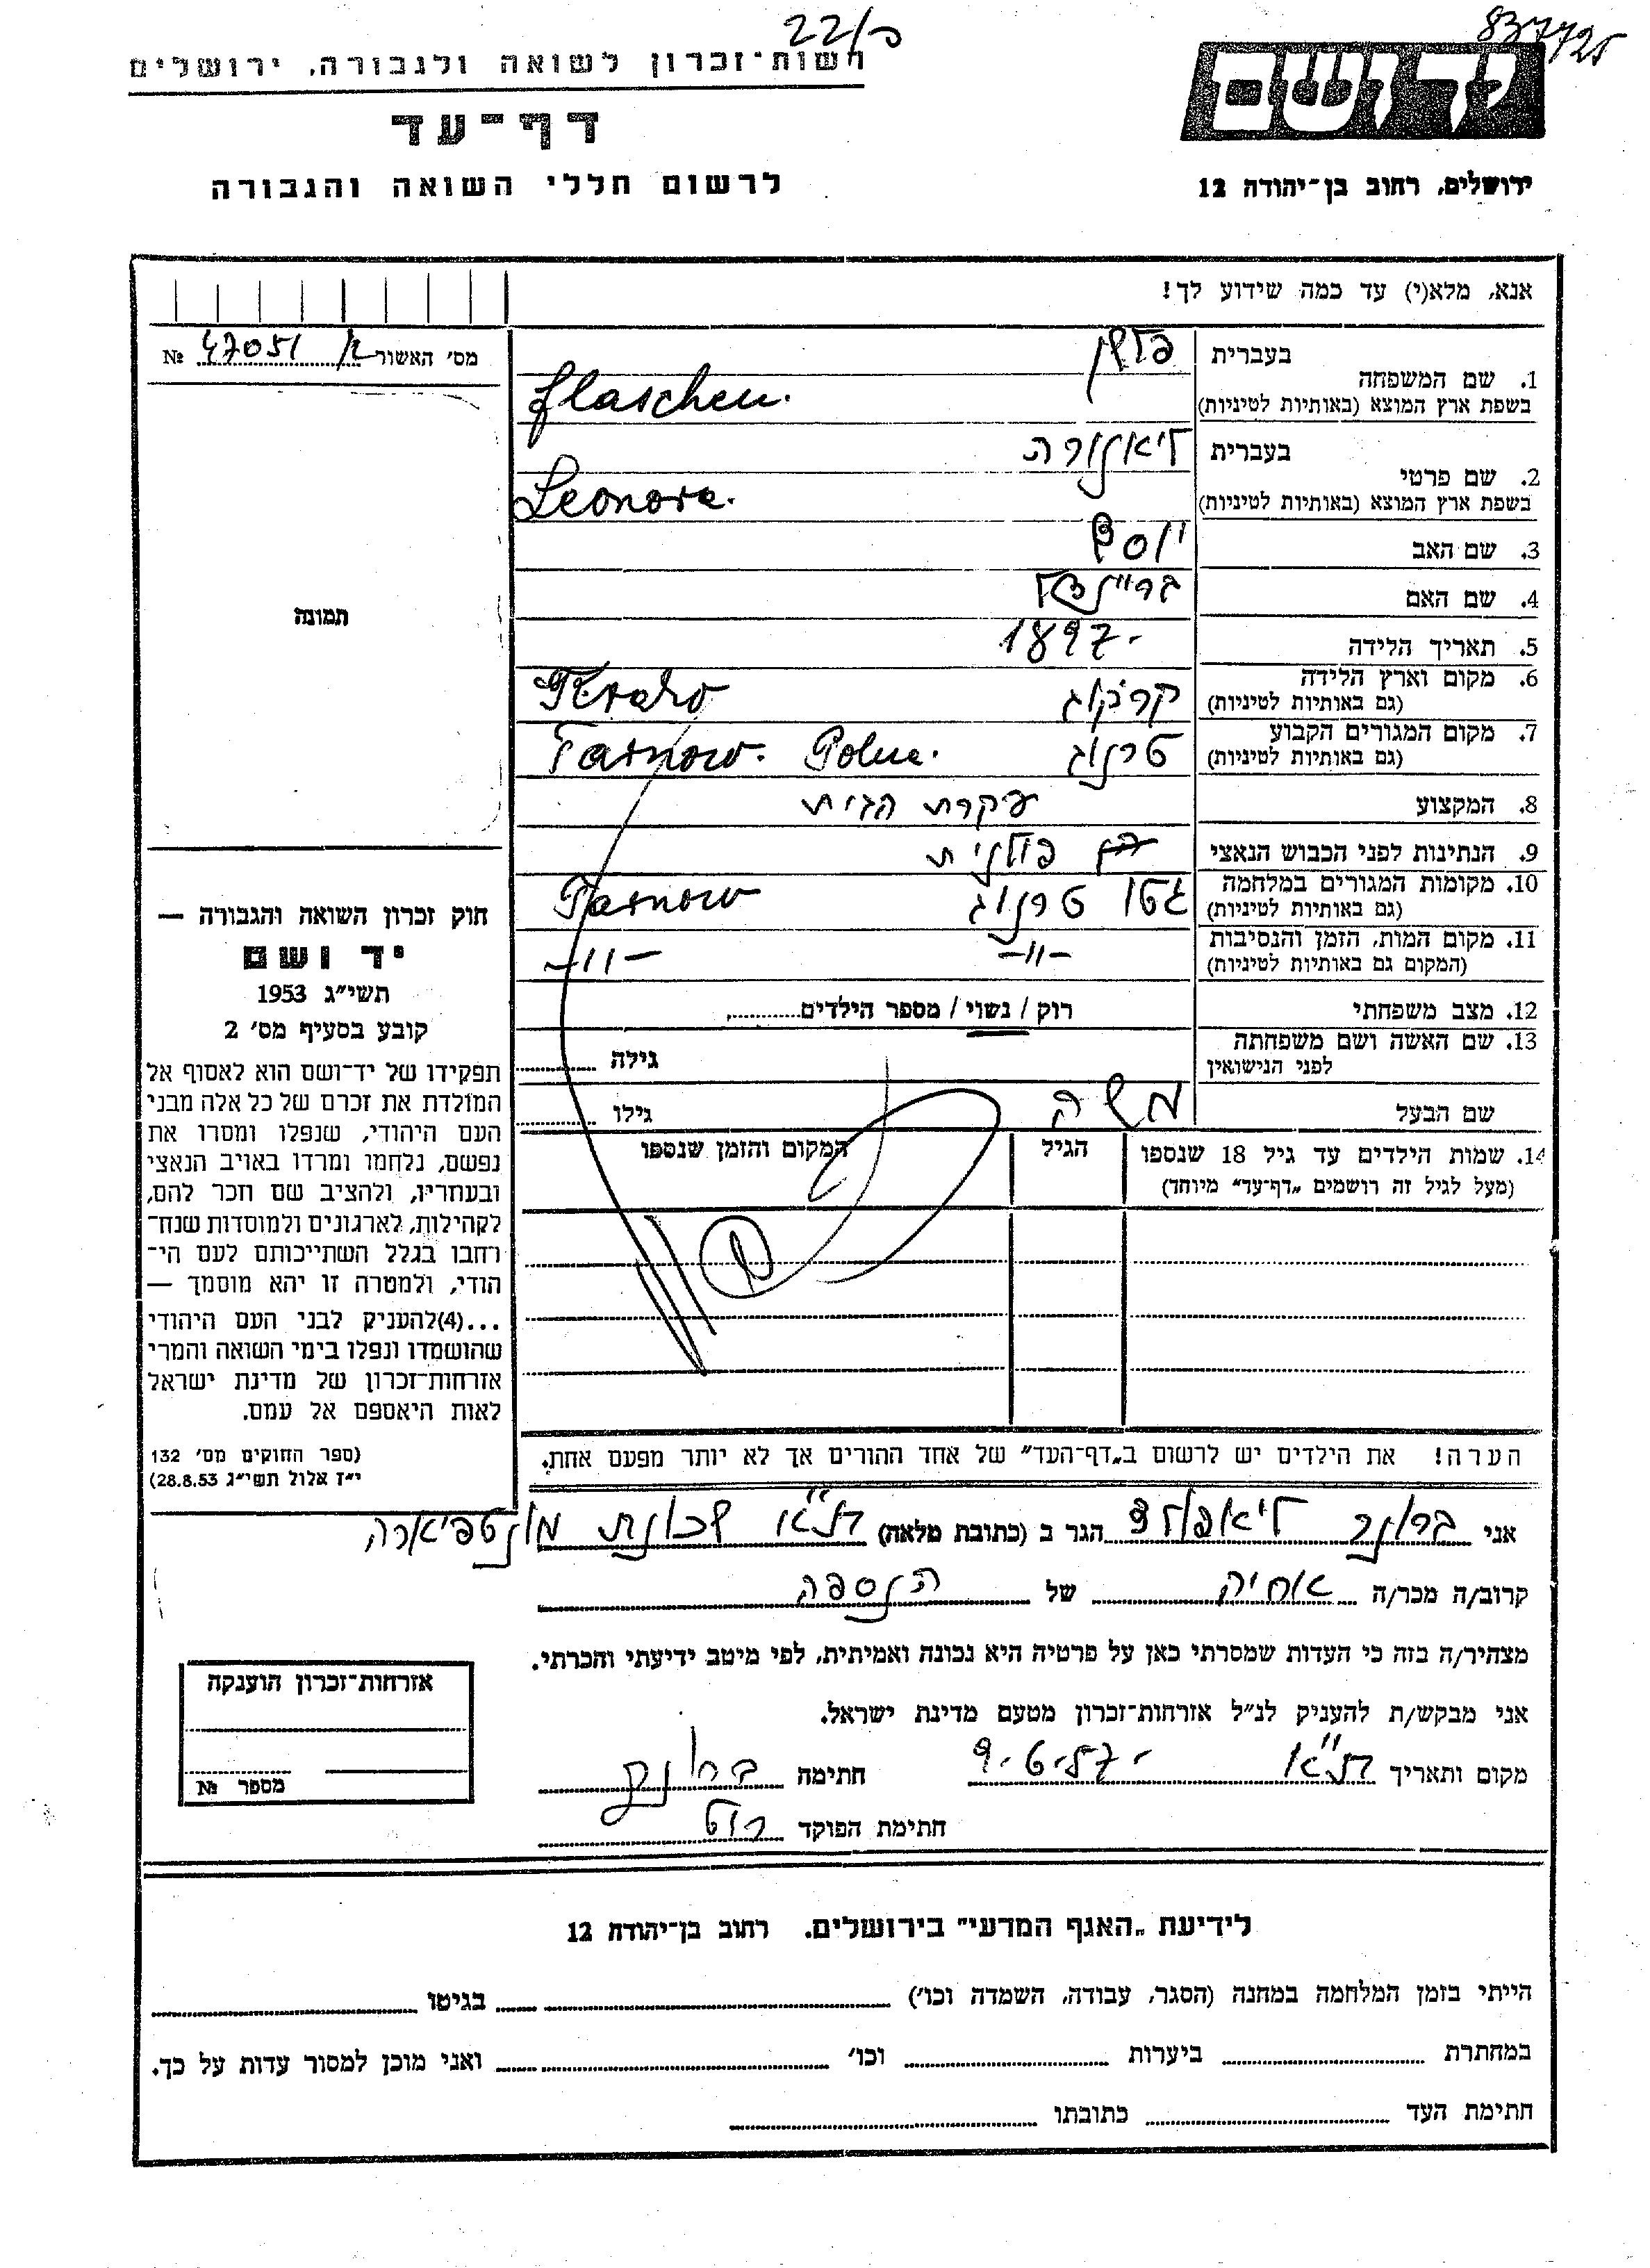 837725
22/פ
רשות־זכרון לשואה ולגבורה, ירושלים
יד ושם
דף־עד
לרשום חללי השואה והגבורה
ירושלים, רחוב בן־יהודה 12
אנא, מלא(י) עד כמה שידוע לך!
מס׳ האשור 47051 №
1. שם המשפחה
בעברית פלשן
בשפת ארץ המוצא (באותיות לטיניות) Flaschen.
2. שם פרטי
בעברית ליאונורה
בשפת ארץ המוצא (באותיות לטיניות) Leonora.
3. שם האב יוסף
4. שם האם בריינדל
5. תאריך הלידה 1897.
6. מקום וארץ הלידה
(גם באותיות לטיניות) קרקוב Krako
7. מקום המגורים הקבוע
(גם באותיות לטיניות) טרנוב Tarnow. Polne.
8. המקצוע עקרת הבית
9. הנתינות לפני הכבוש הנאצי פולנית
10. מקומות המגורים במלחמה
(גם באותיות לטיניות) גטו טרנוב Tarnow
11. מקום המות, הזמן והנסיבות
(המקום גם באותיות לטיניות) -״- -״-
12. מצב משפחתי רוק / נשוי / מספר הילדים
13. שם האשה ושם משפחתה
לפני הנישואין גילה
שם הבעל משה גילו
14. שמות הילדים עד גיל 18 שנספו הגיל המקום והזמן שנספו
(מעל לגיל זה רושמים „דף־עד״ מיוחד)
הערה! את הילדים יש לרשום ב„דף־העד״ של אחד ההורים אך לא יותר מפעם אחת.
תמונה
חוק זכרון השואה והגבורה —
יד ושם
תשי״ג 1953
קובע בסעיף מס׳ 2
תפקידו של יד־ושם הוא לאסוף אל
המולדת את זכרם של כל אלה מבני
העם היהודי, שנפלו ומסרו את
נפשם, נלחמו ומרדו באויב הנאצי
ובעוזריו, ולהציב שם וזכר להם,
לקהילות, לארגונים ולמוסדות שנח־
רחבו בגלל השתייכותם לעם הי־
הודי, ולמטרה זו יהא מוסמך —
...(4)להעניק לבני העם היהודי
שהושמדו ונפלו בימי השואה והמרי
אזרחות־זכרון של מדינת ישראל
לאות היאספם אל עמם.
(ספר החוקים מס׳ 132
י״ז אלול תשי״ג 28.8.53)
אני ברונר ליאפולד הגר ב (כתובת מלאה) ת״א שכונת מונטפיורה
קרוב/ה מכר/ה אחיה של הנספה
מצהיר/ה בזה כי העדות שמסרתי כאן על פרטיה היא נכונה ואמיתית, לפי מיטב ידיעתי והכרתי.
אני מבקש/ת להעניק לנ״ל אזרחות־זכרון מטעם מדינת ישראל.
מקום ותאריך ת״א 9.6.57. חתימה ברונר
חתימת הפוקד
אזרחות־זכרון הוענקה
מספר №
לידיעת „האגף המדעי״ בירושלים. רחוב בן־יהודה 12
הייתי בזמן המלחמה במחנה (הסגר, עבודה, השמדה וכו׳) בגיטו
במחתרת ביערות וכו׳ ואני מוכן למסור עדות על כך.
חתימת העד כתובתו